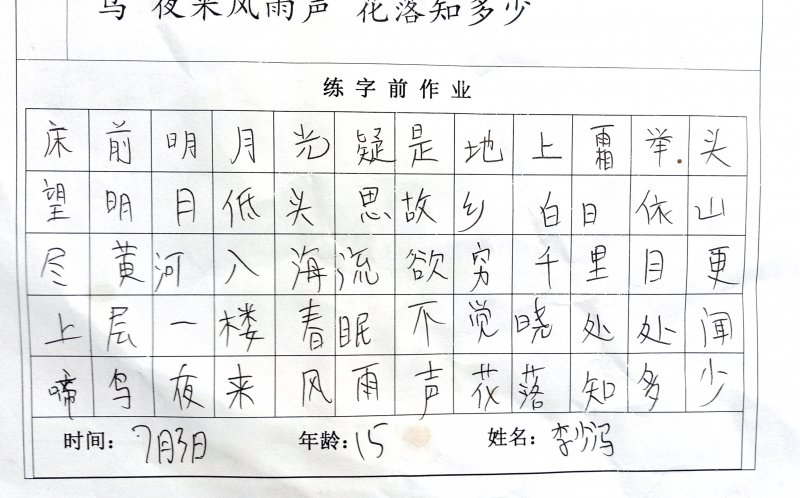 鸟 夜来风雨声 花落知多少
练字前作业
床前明月光疑是地上霜举头
望明月低头思故乡白日依山
尽黄河入海流欲穷千里目更
上层一楼春眠不觉晓处处闻
啼鸟夜来风雨声花落知多少
时间：7月3日 年龄：15 姓名：李